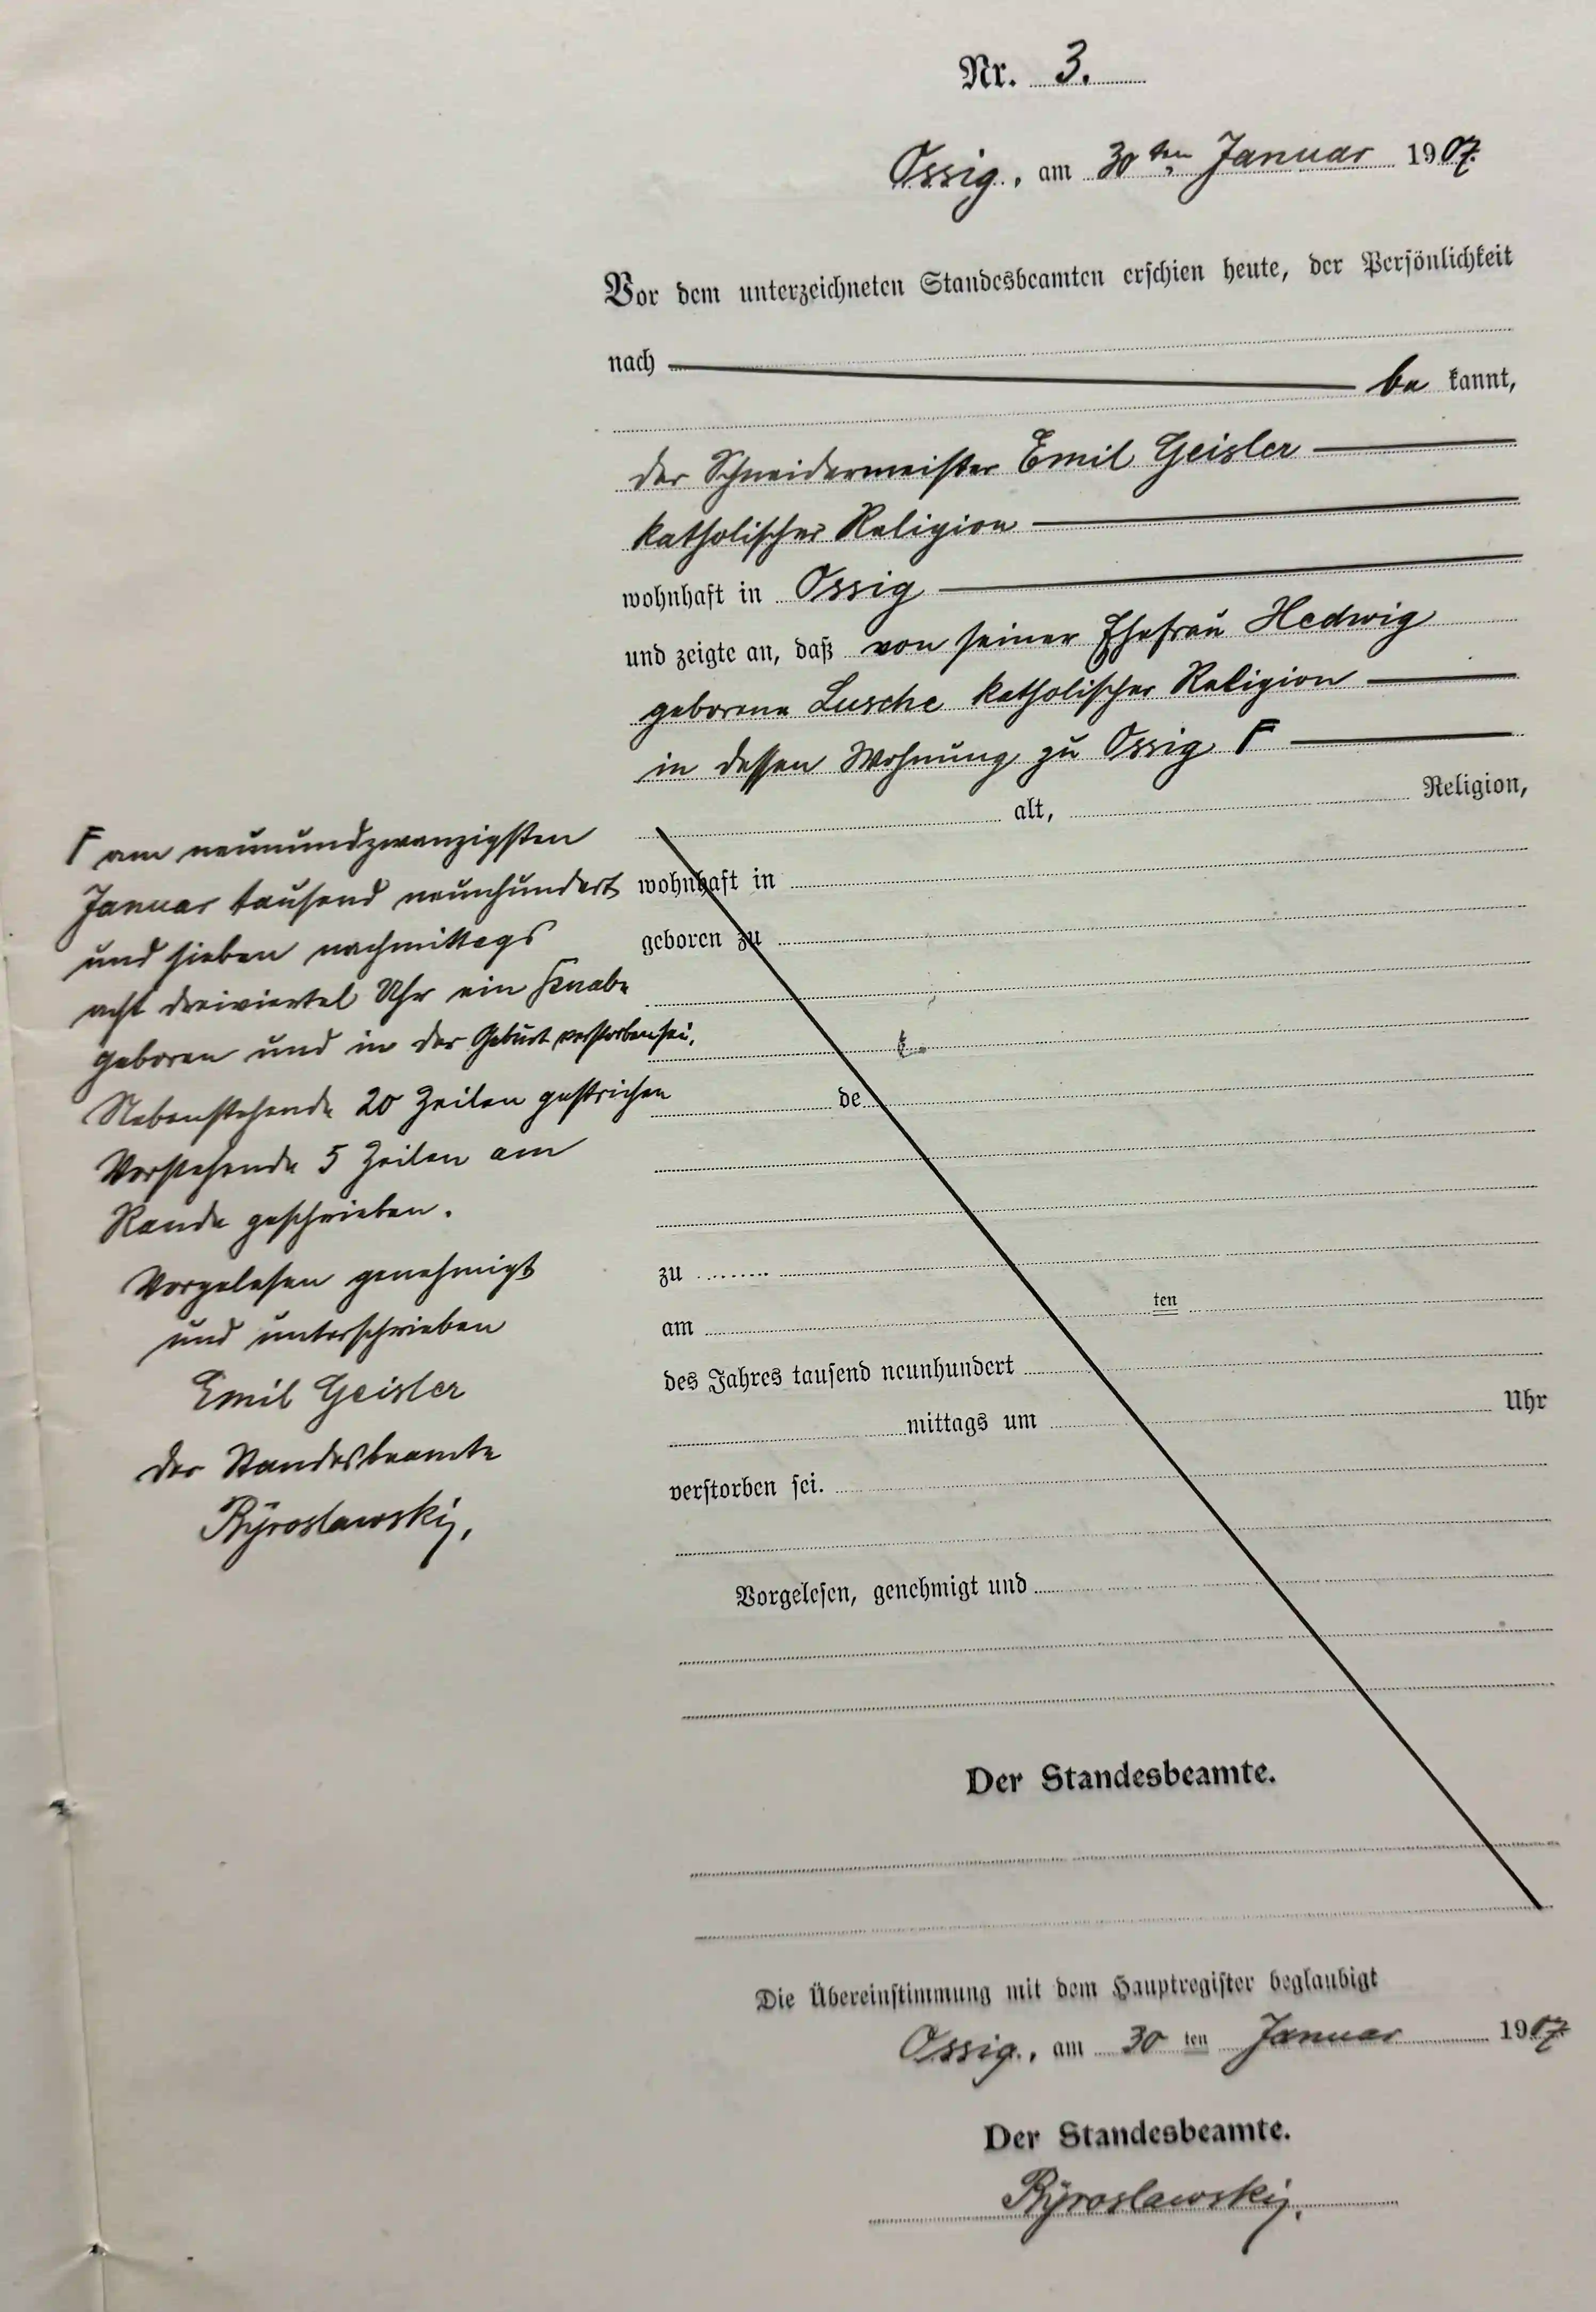 Nr. 3.
Ossig, am 30ten Januar 1907.
Vor dem unterzeichneten Standesbeamten erschien heute, der Persönlichkeit
nach be kannt,
der Schneidermeister Emil Geisler
katholischer Religion
wohnhaft in Ossig
und zeigte an, daß von seiner Ehefrau Hedwig
geborene Lusche katholischer Religion
in dessen Wohnung zu Ossig F
alt, Religion,
wohnhaft in
geboren zu
de
zu
am ten
des Jahres tausend neunhundert
mittags um Uhr
verstorben sei.
Vorgelesen, genehmigt und
Der Standesbeamte.
F am neunundzwanzigsten
Januar tausend neunhundert
und sieben nachmittags
acht dreiviertel Uhr ein Knabe
geboren und in der Geburt verstorben sei.
Nebenstehende 20 Zeilen gestrichen
Vorstehende 5 Zeilen am
Rande geschrieben.
Vorgelesen genehmigt
und unterschrieben
Emil Geisler
Der Standesbeamte
Die Übereinstimmung mit dem Hauptregister beglaubigt
Ossig, am 30 ten Januar 1907
Der Standesbeamte.